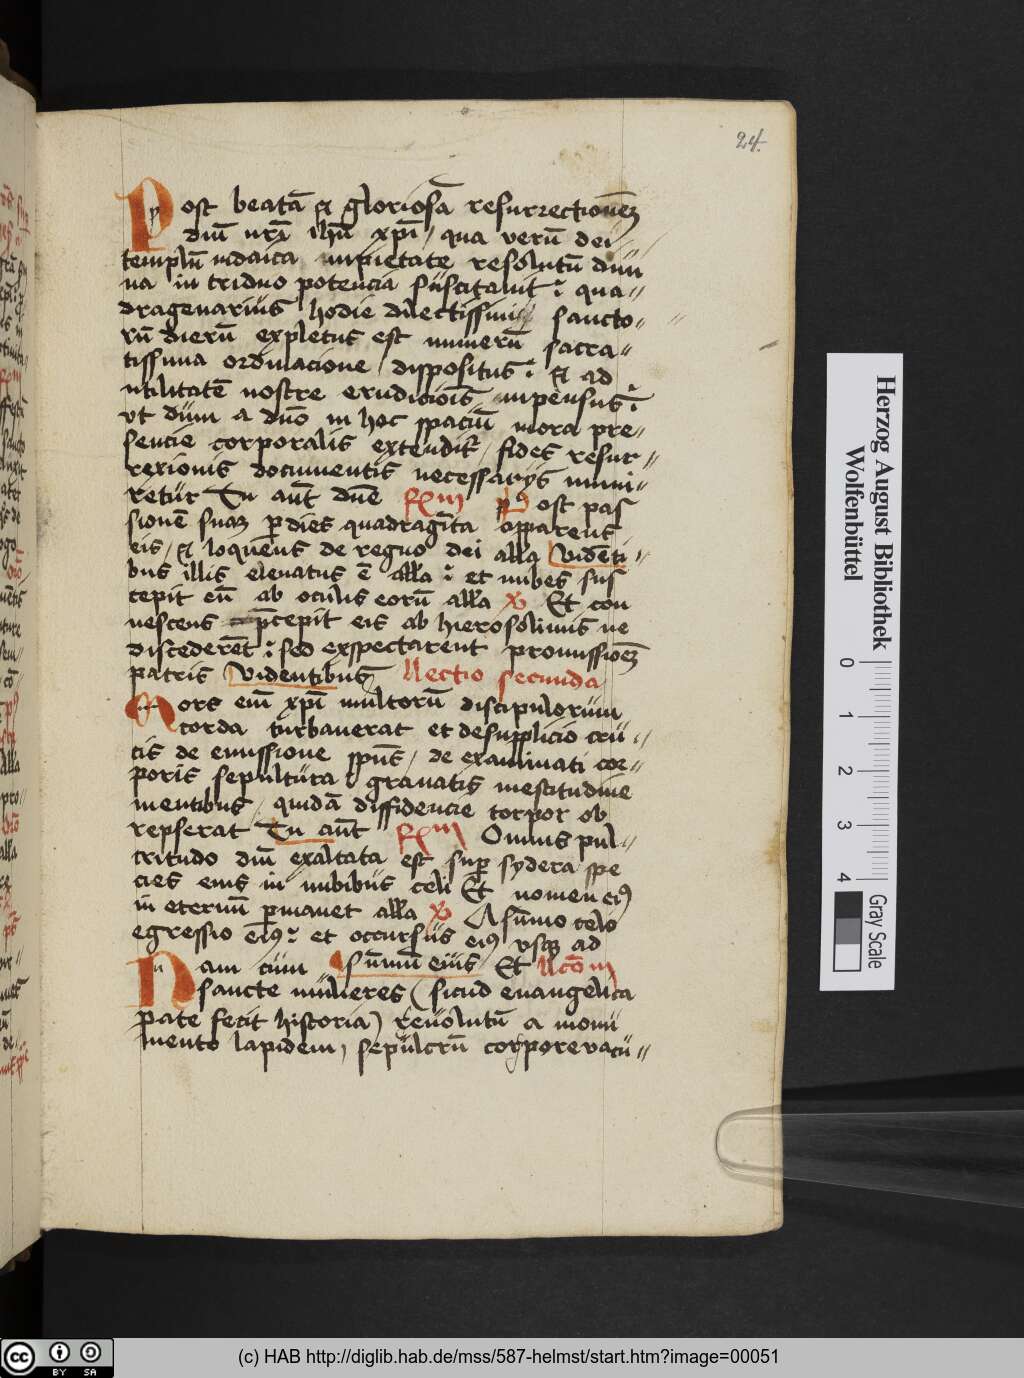 24.
Post beatā et gloriosā resurrectionēm
dnī nrī ihū xpi / qua verū dei
templū iudaica inpietate resolutū diui
na in triduo potencia suscitauit : qua„
dragenarius hodie dilectissimi sancto„
rū dierū expletus est numerū sacra„
tissima ordinacione / dispositus : et ad
utilitatē nostre erudicionis inpensus :
vt dum a dnō in hoc spaciū mora pre„
sencie corporalis extendit / fides resur„
rexionis documentis necessariis muni„
retur Tu aut dne Rm Post pas
sionē suam p dies quadraginta apparens
eis / et loquens de regno dei alla Videnti„
bus illis eleuatus ē alla : et nubes sus
cepit eū ab oculis eorū alla v Et con
uescens pcepit eis ab hierosolimis ne
discederēt : sed exspectarent promissionēm
patris Videntibus llectio secunda
Mors em xpi multorū discipulorum
corda turbauerat et de supplicio cru„
cis de emissione spūs / de exanimati cor„
poris sepultura : grauatis mestitudine
mentibus / quidā diffidencie torpor ob
repserat Tu aut Rm Omnis pul„
critudo dnī exaltata est sup sydera spe
cies eius in nubibus celi Et nomen eius
in eternū pmanet alla v A sūmo celo
egressio eius : et occursus eius vsq ad
sūmū eius Et llco m
Nam cum
sancte mulieres (sicud euangelica
pate fecit historia) reuolutū a monu
mento lapidem / sepulcrū corpore vacu„
Herzog August Bibliothek
Wolfenbüttel
0 1 2 3 4
Gray Scale
cc BY SA
(c) HAB http://diglib.hab.de/mss/587-helmst/start.htm?image=00051